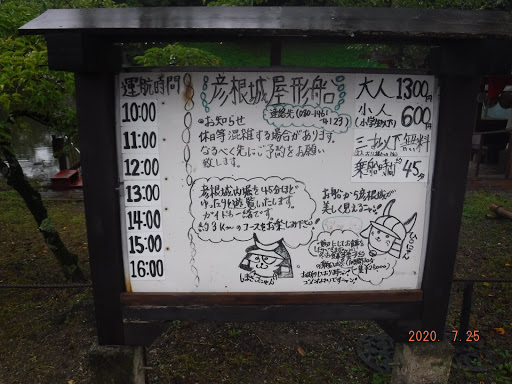 運航時間
10:00
11:00
12:00
13:00
14:00
15:00
16:00
彦根城屋形船
連絡先(080-1461
4123)
お知らせ
休日等混雑する場合があります。
なるべく先にご予約をお願い
致します。
大人 1300円
小人 600円
(小学生以下)
三才以下 無料
乗船時間 45分
彦根城内堀を45分ほど
ゆったり遊覧いたします。
ガイドも一緒です。
約3kmのコースをお楽しみ下さい!
お船から彦根城が
美しく見えるニャン
2020. 7.25